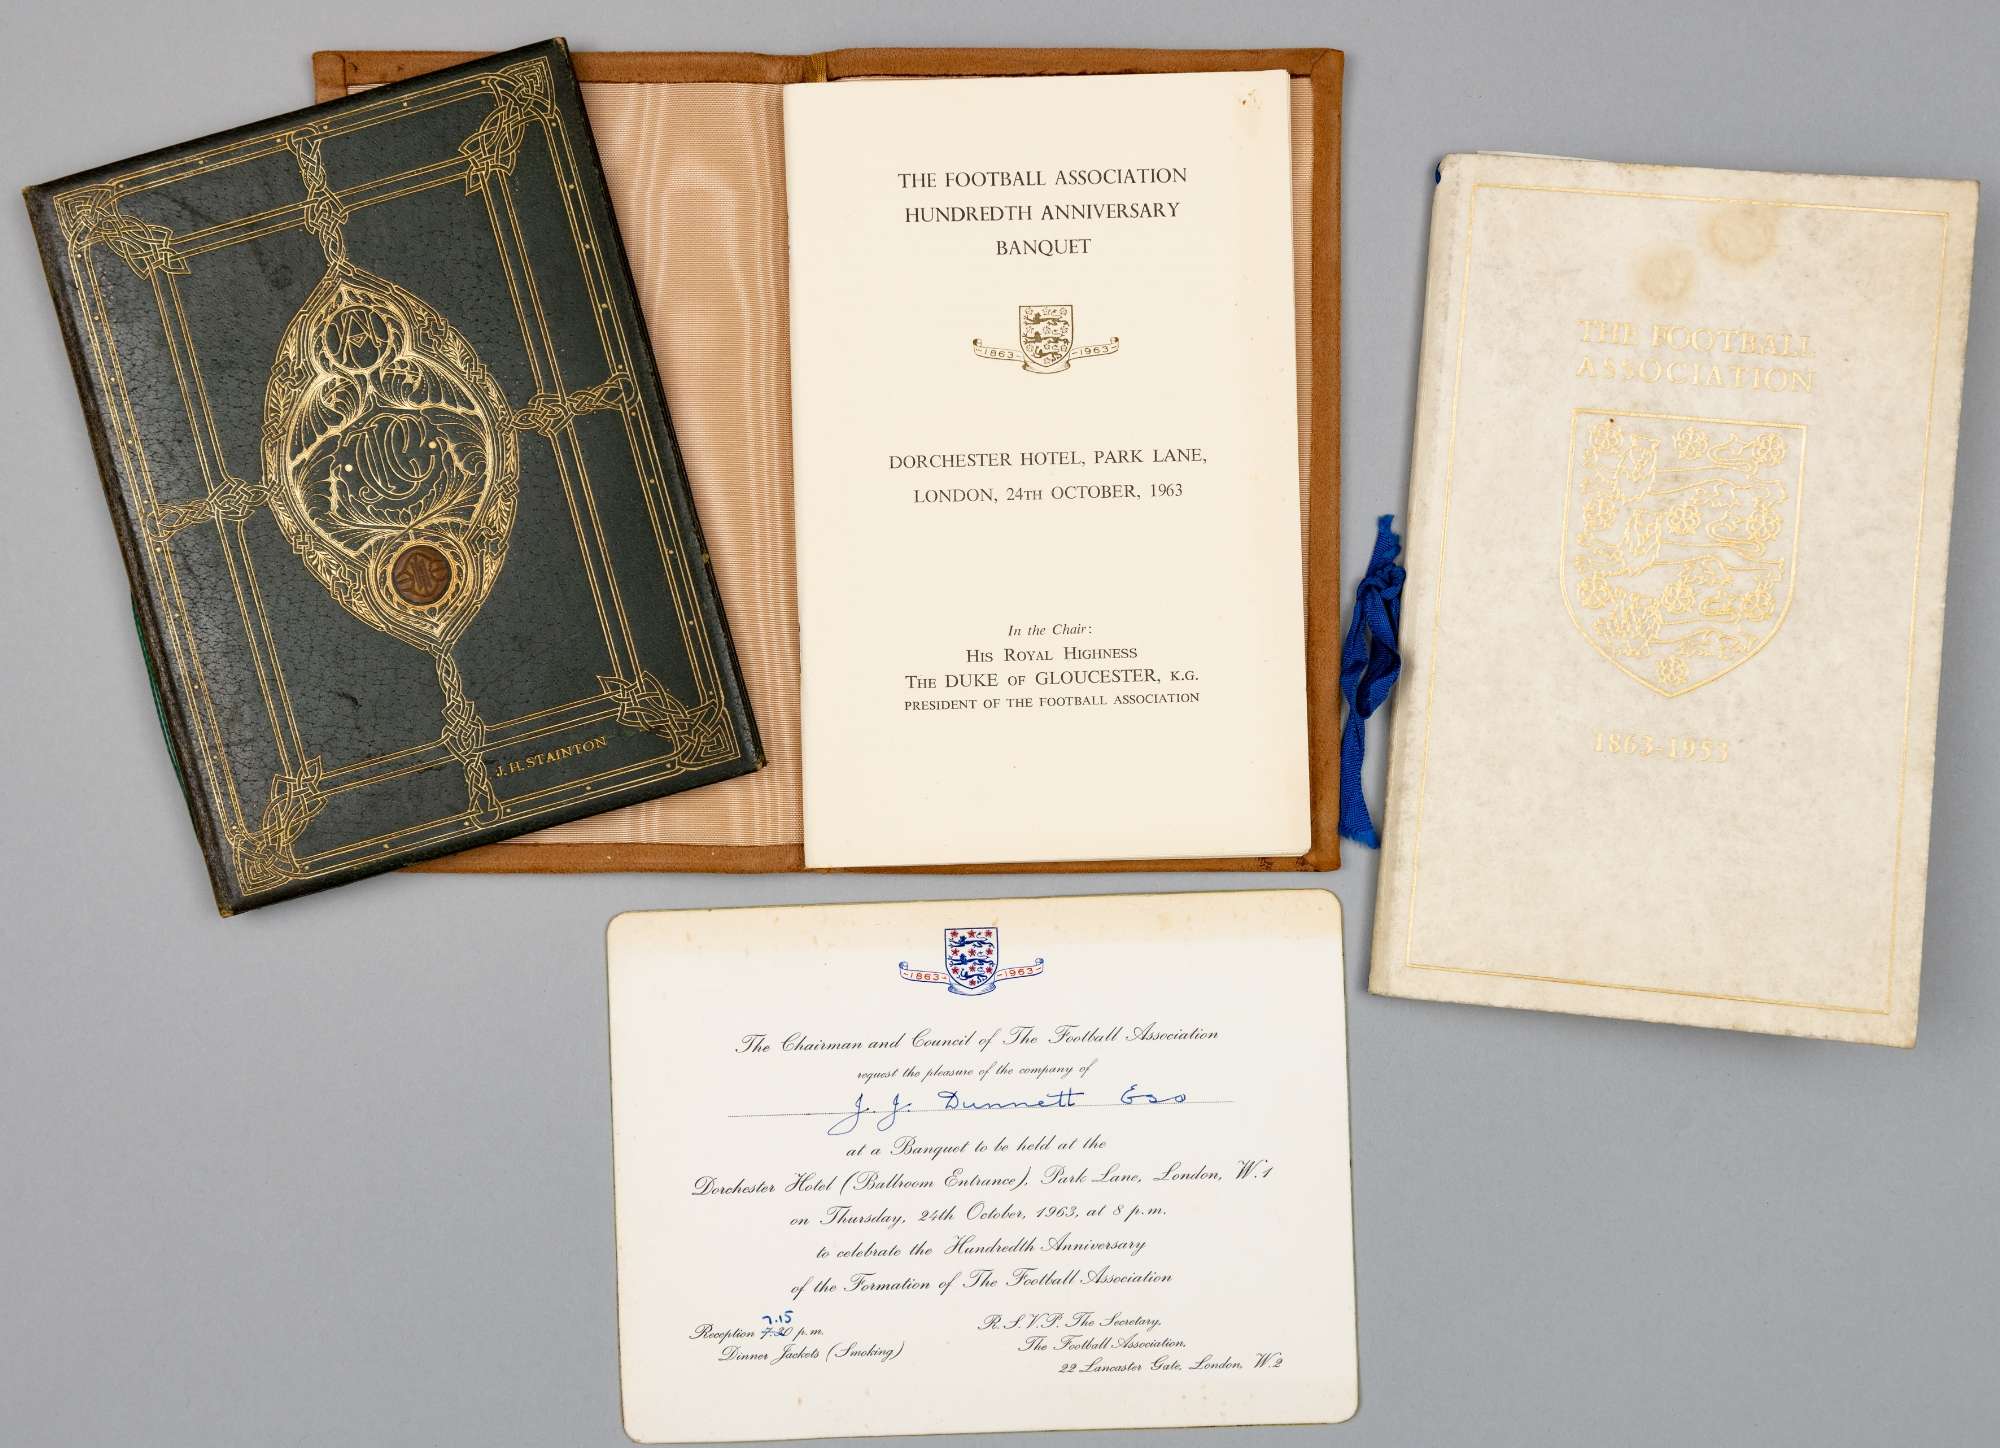 J. H. STAINTON
THE FOOTBALL ASSOCIATION
HUNDREDTH ANNIVERSARY
BANQUET
1863 1963
DORCHESTER HOTEL, PARK LANE,
LONDON, 24TH OCTOBER, 1963
In the Chair:
HIS ROYAL HIGHNESS
THE DUKE OF GLOUCESTER, K.G.
PRESIDENT OF THE FOOTBALL ASSOCIATION
THE FOOTBALL
ASSOCIATION
1863-1953
1863 1963
The Chairman and Council of The Football Association
request the pleasure of the company of
J. J. Dunnett Esq
at a Banquet to be held at the
Dorchester Hotel (Ballroom Entrance), Park Lane, London, W.1
on Thursday, 24th October, 1963, at 8 p.m.
to celebrate the Hundredth Anniversary
of the Formation of The Football Association
7.15
Reception 7.30 p.m.
Dinner Jackets (Smoking)
R.S.V.P. The Secretary,
The Football Association,
22 Lancaster Gate, London, W.2